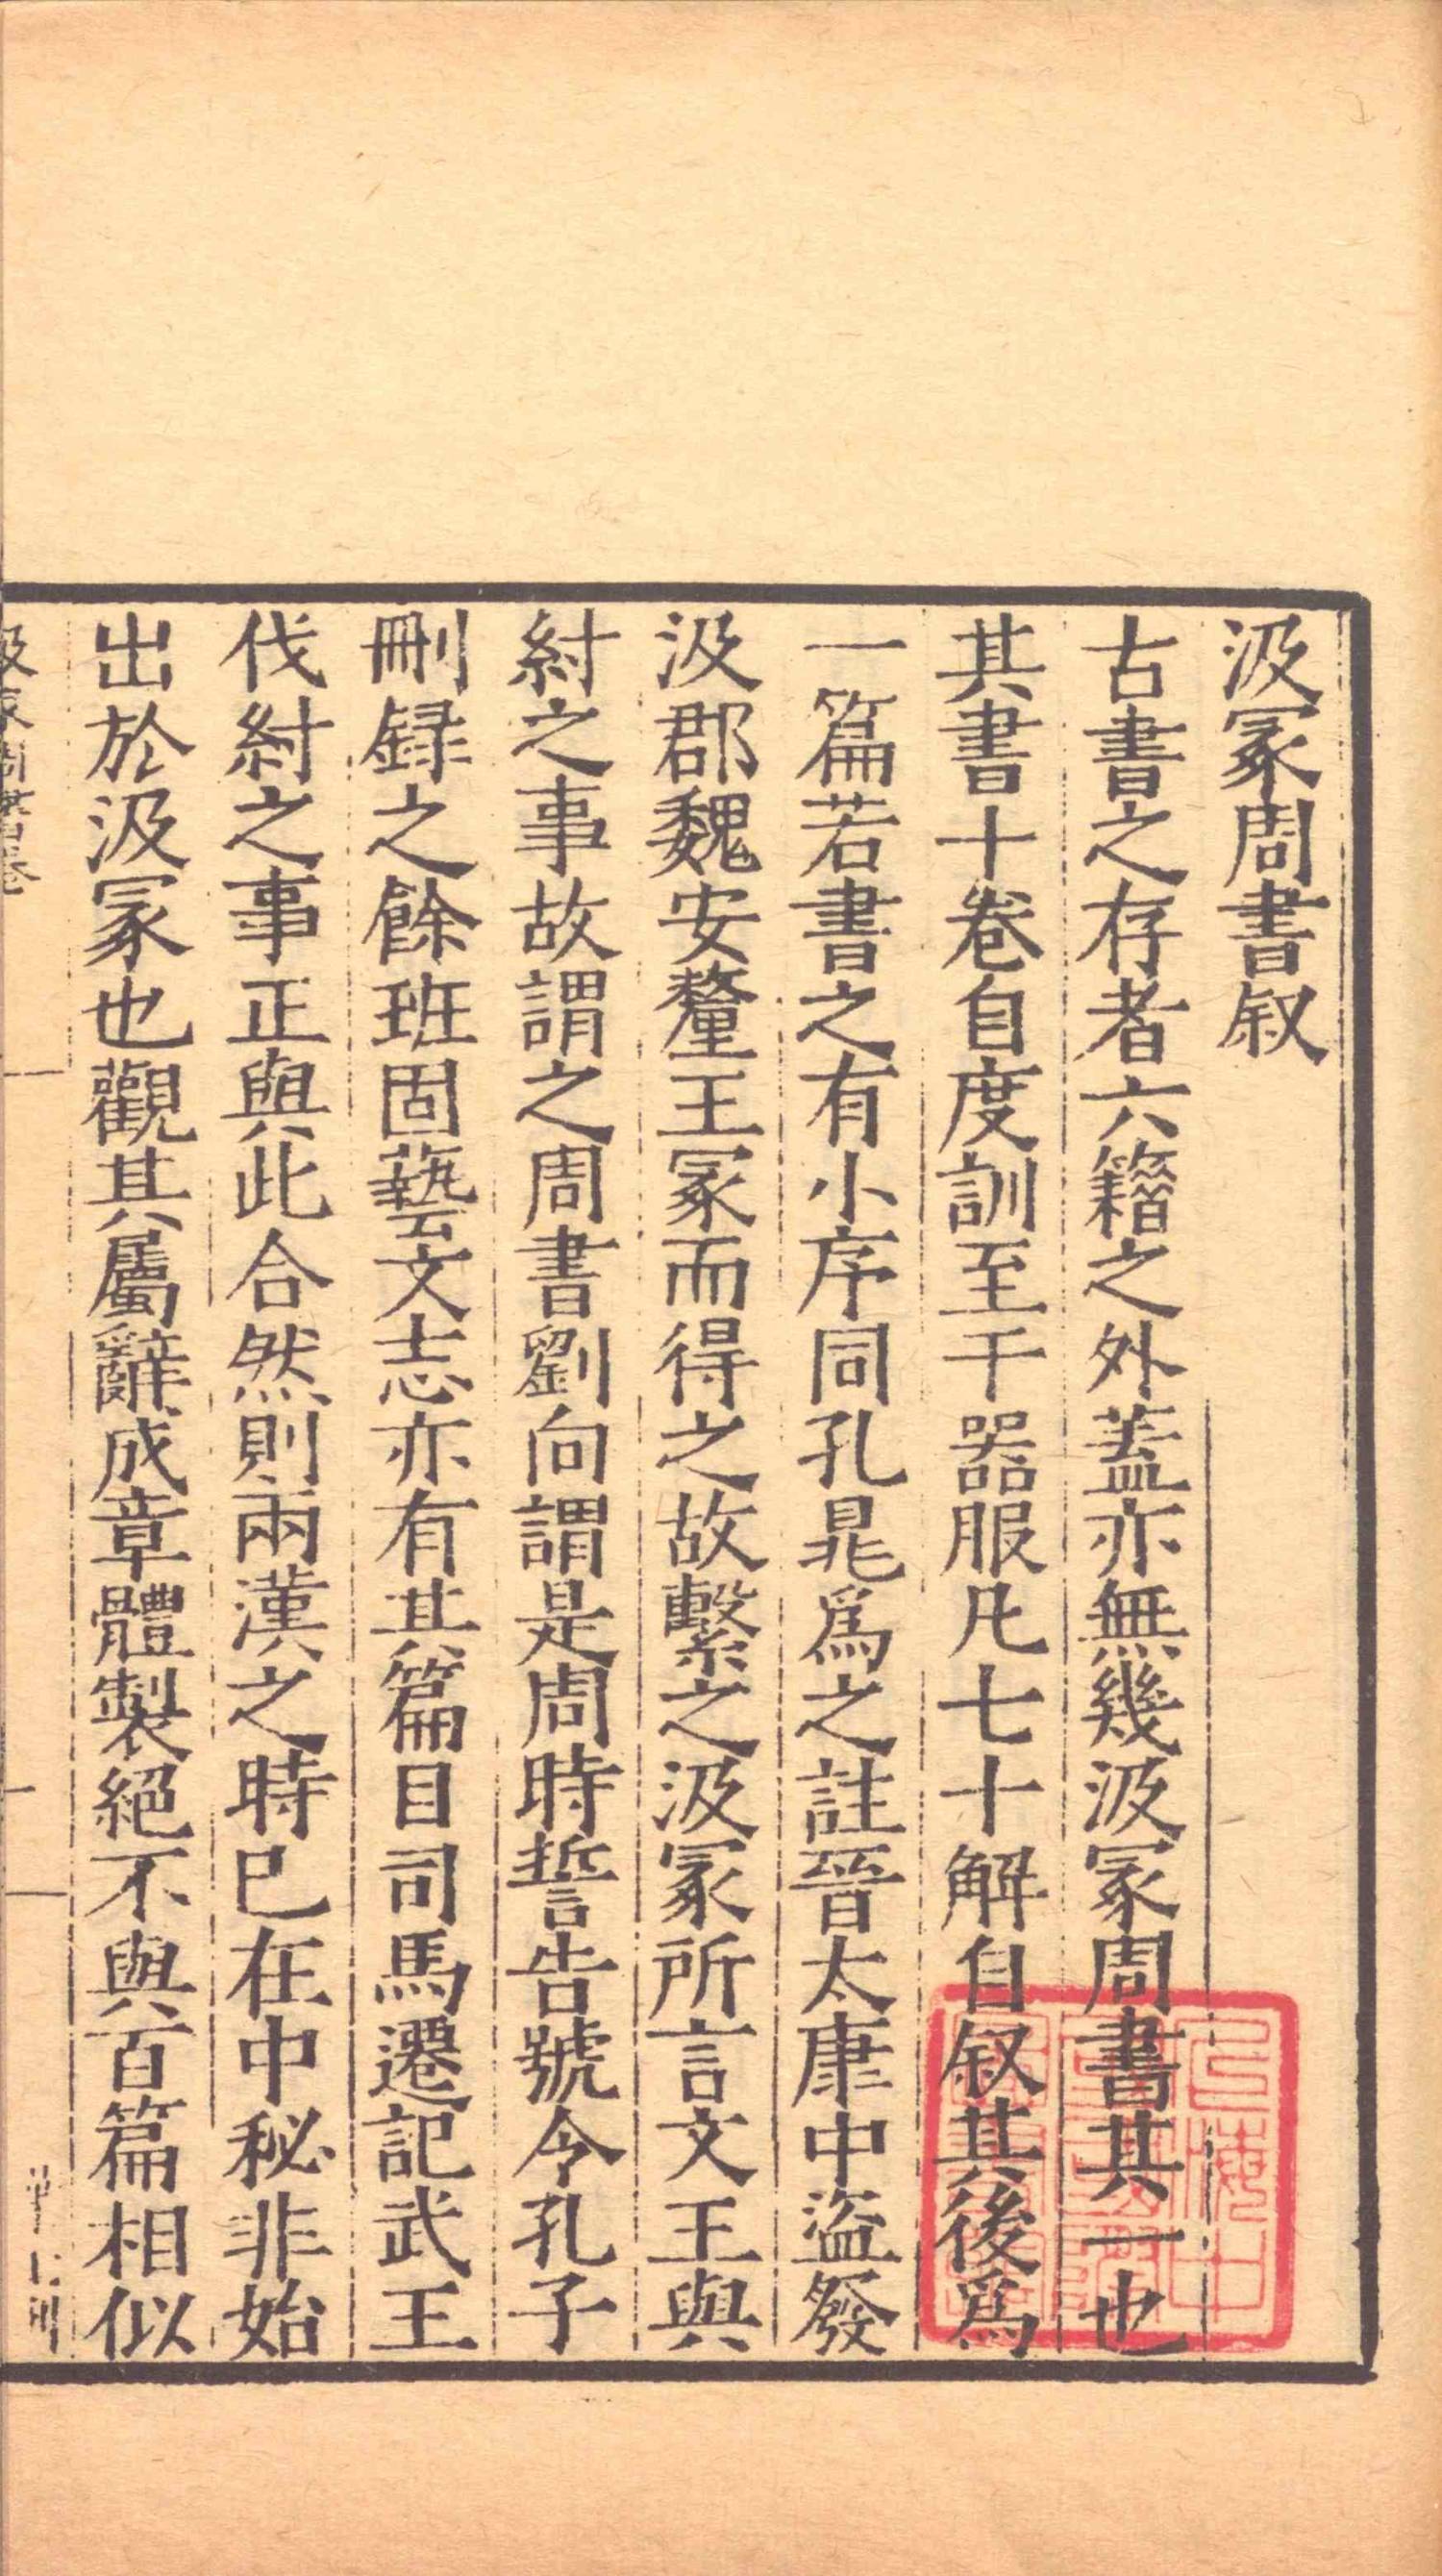 汲冢周書叙
古書之存者六籍之外蓋亦無幾汲冢周書其一也
其書十卷自度訓至于器服凡七十解自叙其後爲
一篇若書之有小序同孔晁爲之註晉太康中盜發
汲郡魏安釐王冢而得之故繫之汲冢所言文王與
紂之事故謂之周書劉向謂是周時誓告號令孔子
刪録之餘班固藝文志亦有其篇目司馬遷記武王
伐紂之事正與此合然則兩漢之時已在中秘非始
出於汲冢也觀其屬辭成章體製絕不與百篇相似